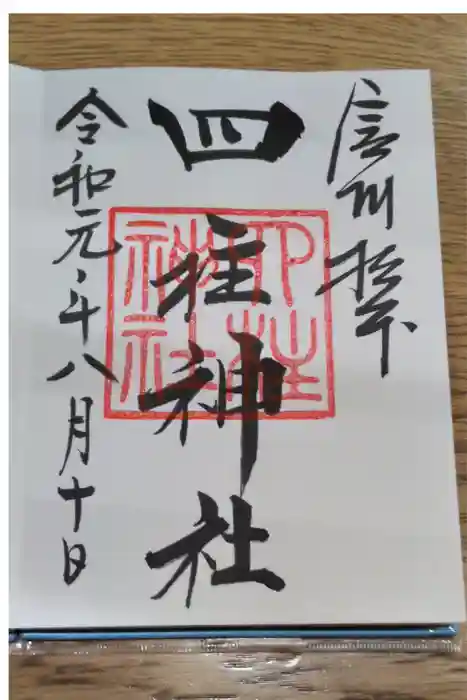 信州松本
四柱神社
四柱
神社
令和元年八月十日